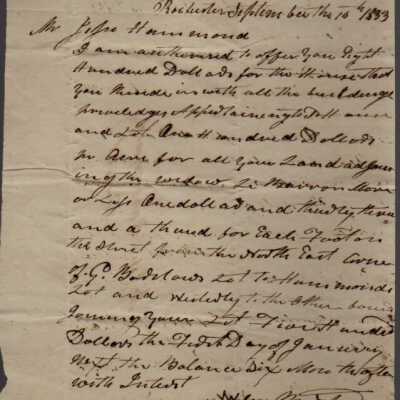 Rochester September the 10th 1833
Mr Jesse Hammond
I am authorised to offer you Eight
Hundred Dollars for the House that
you reside in with all the buildings
priveledges Appertaining to the same
and Lot One Hundred Dollars
pr Acre for all your Land adjoin
ing of the widow more
or Less One dollar and thirty three
and a third for Each Foot on
the Street from the North East Corner
of Lot to Hammonds
Lot and to the other
Joining your Lot Five Hundred
Dollars the First Day of January
next the Balance Six Months after
with Interest